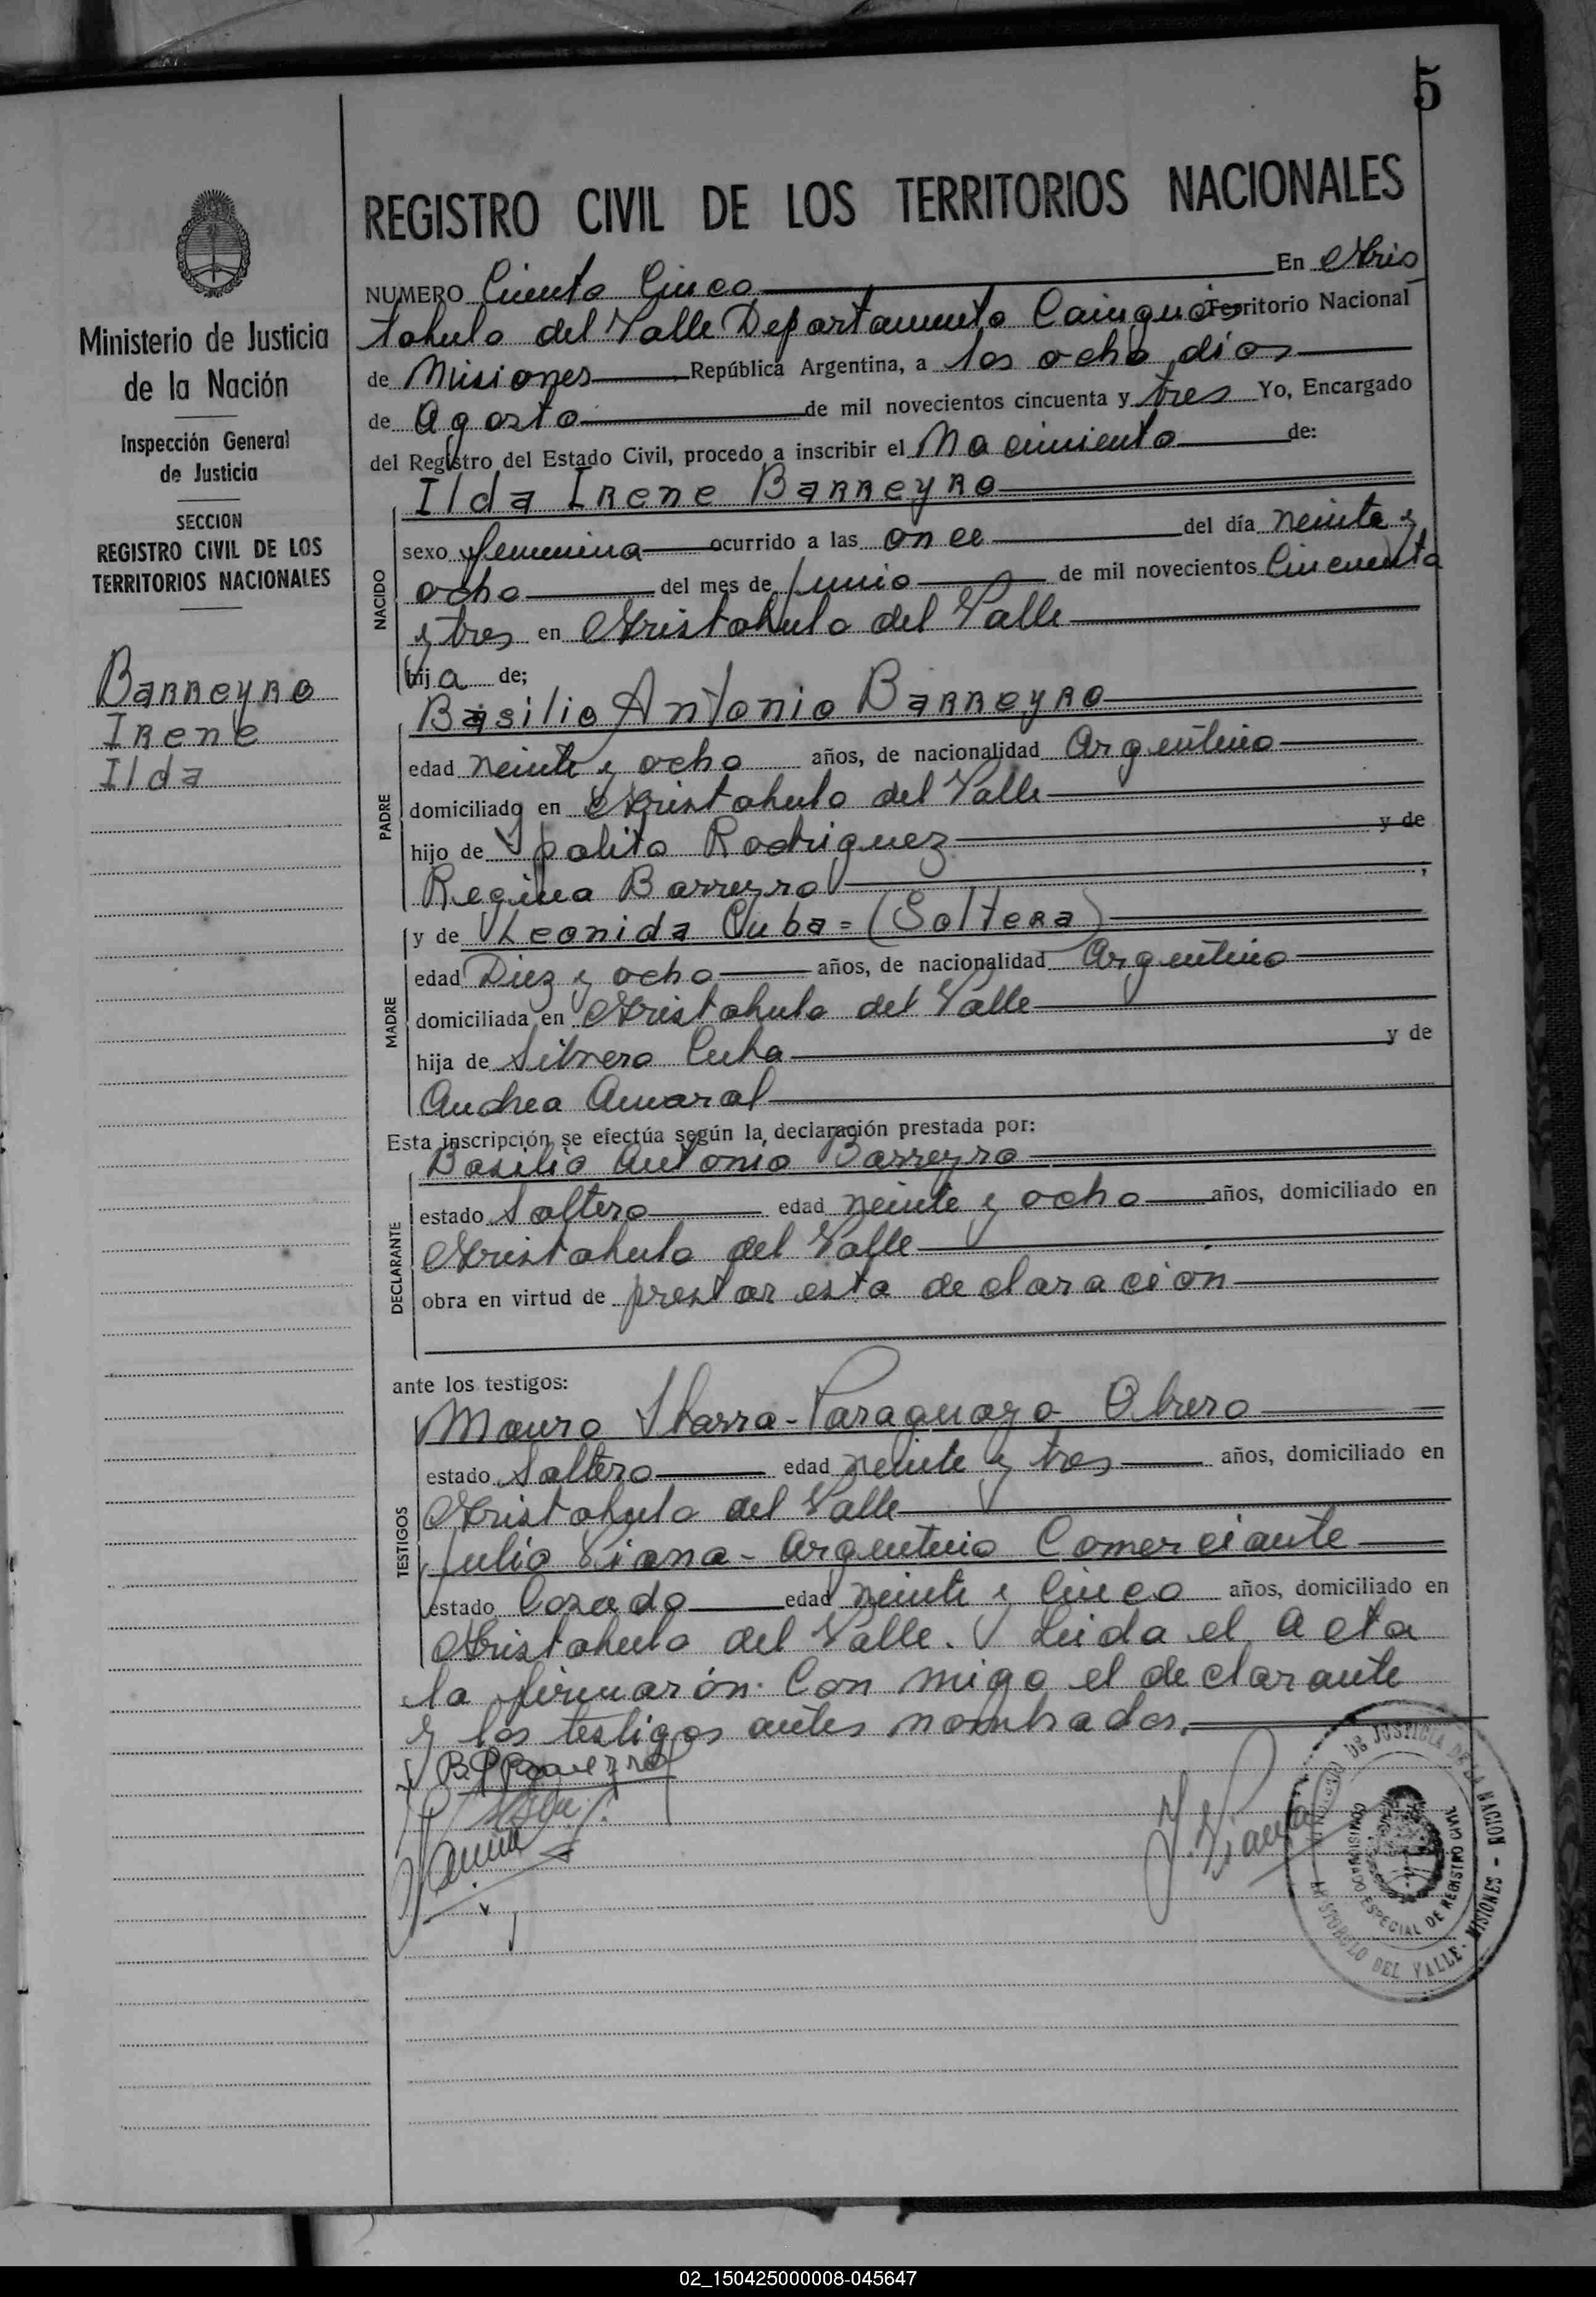 5
REGISTRO CIVIL DE LOS TERRITORIOS NACIONALES
Ministerio de Justicia
de la Nación
Inspección General
de Justicia
SECCION
REGISTRO CIVIL DE LOS
TERRITORIOS NACIONALES
Barreyro
Irene
Ilda
NUMERO Ciento Cinco En Aris
tobulo del Valle Departamento Cainguás Territorio Nacional
de Misiones República Argentina, a los ocho días
de Agosto de mil novecientos cincuenta y tres Yo, Encargado
del Registro del Estado Civil, procedo a inscribir el Nacimiento de:
Ilda Irene Barreyro
NACIDO
sexo femenina ocurrido a las once del día veinte y
ocho del mes de Junio de mil novecientos Cincuenta
y tres en Aristobulo del Valle
hija de;
Basilio Antonio Barreyro
PADRE
edad veinte y ocho años, de nacionalidad Argentino
domiciliado en Aristobulo del Valle
hijo de Ipolito Rodriguez y de
Regina Barreyro ,
y de Leonida Cuba = (Soltera)
MADRE
edad Diez y ocho años, de nacionalidad Argentino
domiciliada en Aristobulo del Valle
hija de Silvero Cuba y de
Andrea Amaral
Esta inscripción se efectúa según la declaración prestada por:
Basilio Antonio Barreyro
DECLARANTE
estado Soltero edad veinte y ocho años, domiciliado en
Aristobulo del Valle
obra en virtud de prestar esta declaracion
ante los testigos:
Mauro Ibarra - Paraguayo Obrero
TESTIGOS
estado Soltero edad veinte y tres años, domiciliado en
Aristobulo del Valle
Julio Viana - Argentino Comerciante
estado Cosado edad veinte y Cinco años, domiciliado en
Aristobulo del Valle. Leida el Acta
la firmarón. Con migo el declarante
y los testigos antes nombrados.
B. A Barreyro
J. Viana
MINISTERIO DE JUSTICIA DE LA NACION - MISIONES -
COMISIONADO ESPECIAL DE REGISTRO CIVIL
ARISTOBULO DEL VALLE
02_150425000008-045647